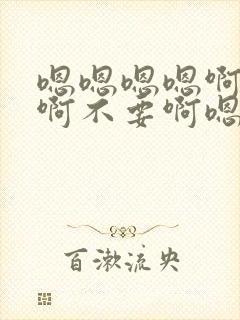 嗯嗯嗯嗯啊
啊不要啊嗯
百漱流央